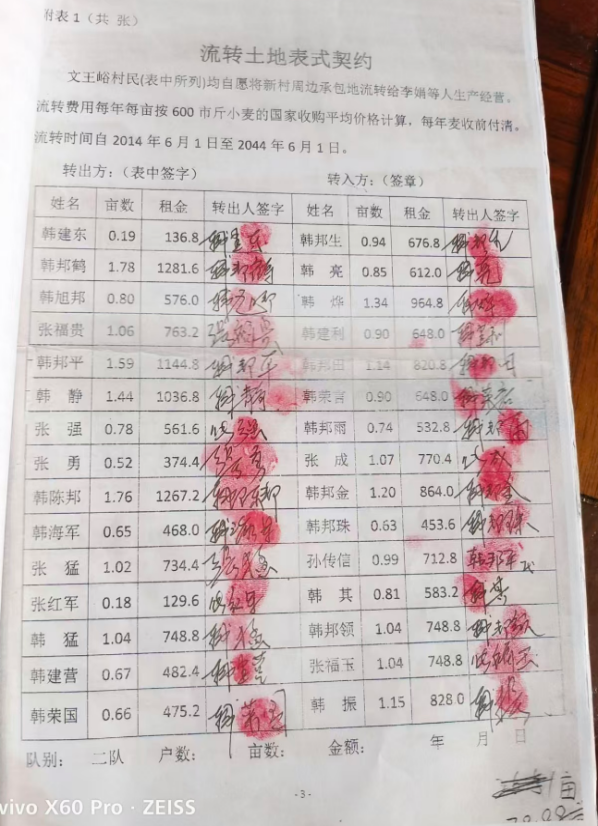 附表1（共 张）
流转土地表式契约
文王峪村民(表中所列)均自愿将新村周边承包地流转给李娟等人生产经营。
流转费用每年每亩按600市斤小麦的国家收购平均价格计算，每年麦收前付清。
流转时间自2014年6月1日至2044年6月1日。
转出方：（表中签字） 转入方：（签章）
姓名 亩数 租金 转出人签字 姓名 亩数 租金 转出人签字
韩建东 0.19 136.8 韩建东 韩邦生 0.94 676.8
韩邦鹤 1.78 1281.6 韩邦鹤 韩 亮 0.85 612.0 韩亮
韩旭邦 0.80 576.0 韩 烨 1.34 964.8 韩烨
张福贵 1.06 763.2 张福贵 韩建利 0.90 648.0 韩建利
韩邦平 1.59 1144.8 韩邦平 韩邦田 1.14 820.8 韩邦田
韩 静 1.44 1036.8 韩静 韩荣言 0.90 648.0 韩荣言
张 强 0.78 561.6 张强 韩邦雨 0.74 532.8 韩邦雨
张 勇 0.52 374.4 张 成 1.07 770.4 张成
韩陈邦 1.76 1267.2 韩邦金 1.20 864.0 韩邦金
韩海军 0.65 468.0 韩海军 韩邦珠 0.63 453.6 韩邦珠
张 猛 1.02 734.4 张猛 孙传信 0.99 712.8 韩邦军代
张红军 0.18 129.6 张红军 韩 其 0.81 583.2 韩其
韩 猛 1.04 748.8 韩猛 韩邦领 1.04 748.8 韩邦领
韩建营 0.67 482.4 韩建营 张福玉 1.04 748.8 张福玉
韩荣国 0.66 475.2 韩荣国 韩 振 1.15 828.0 韩振
队别： 二队 户数： 亩数： 金额： 年 月 日
-3-
亩
vivo X60 Pro · ZEISS